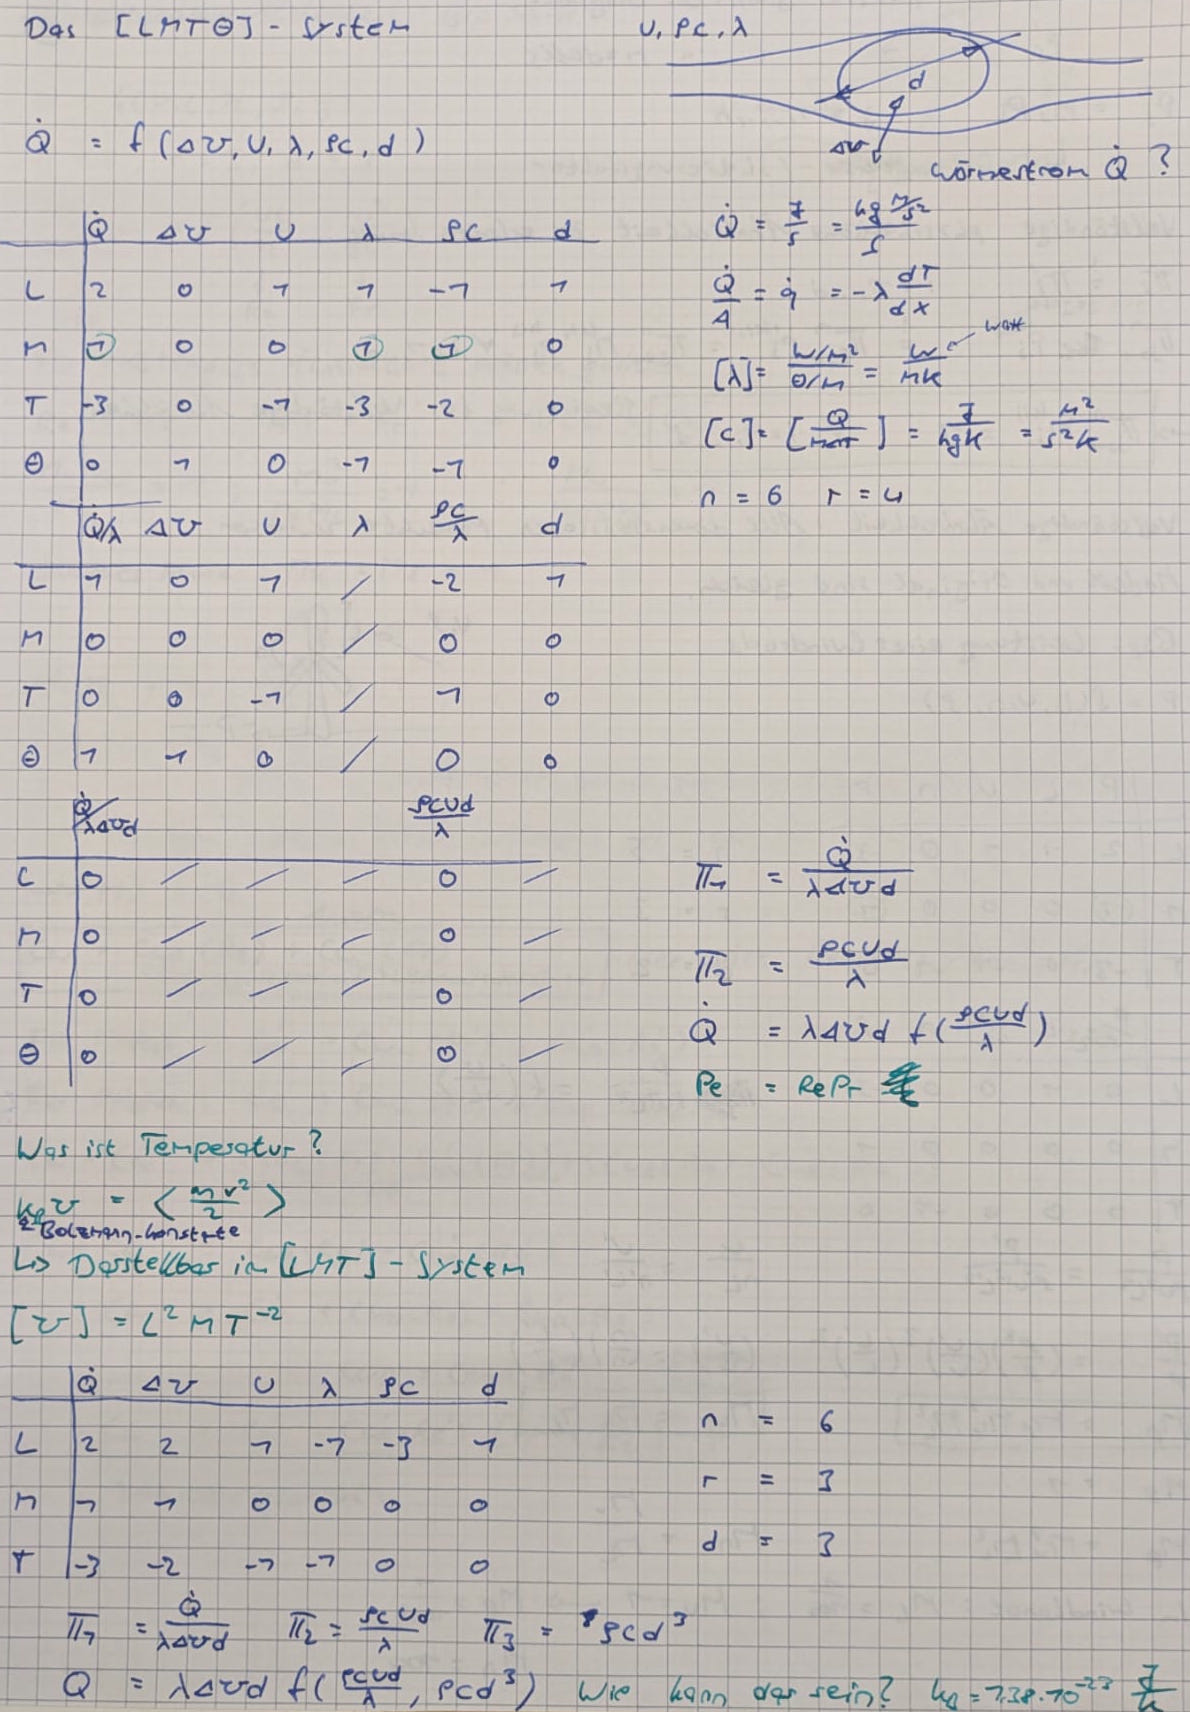 Das [LMTΘ] - System
U, ρc, λ
d
Δϑ
Wärmestrom Q̇ ?
Q̇ = f (Δϑ, U, λ, ρc, d)
Q̇ Δϑ U λ ρc d
L 2 0 1 1 -1 1
M 1 0 0 1 1 0
T -3 0 -1 -3 -2 0
Θ 0 1 0 -1 -1 0
Q̇ = J/s = kg m²/s² / s
Q̇/A = q̇ = -λ dT/dx
[λ] = W/m² / Θ/m = W/mK ← Watt
[c] = [Q/mΔT] = J/kgK = m²/s²K
n = 6 r = 4
Q̇/λ Δϑ U λ ρc/λ d
L 1 0 1 / -2 1
M 0 0 0 / 0 0
T 0 0 -1 / 1 0
Θ 1 1 0 / 0 0
Q̇/λΔϑd ρcUd/λ
L 0 / / / 0 /
M 0 / / / 0 /
T 0 / / / 0 /
Θ 0 / / / 0 /
Π₁ = Q̇/λΔϑd
Π₂ = ρcUd/λ
Q̇ = λΔϑd f(ρcUd/λ)
Pe = RePr
Was ist Temperatur?
k_B ϑ = ⟨mv²/2⟩
Bolzmann-konstante
↳ Darstellbar im [LMT] - System
[ϑ] = L² M T⁻²
Q̇ Δϑ U λ ρc d
L 2 2 1 -1 -3 1
M 1 1 0 0 0 0
T -3 -2 -1 -1 0 0
n = 6
r = 3
d = 3
Π₁ = Q̇/λΔϑd Π₂ = ρcUd/λ Π₃ = ρcd³
Q = λΔϑd f(ρcUd/λ, ρcd³) Wie kann das sein? k_B = 1,38·10⁻²³ J/K